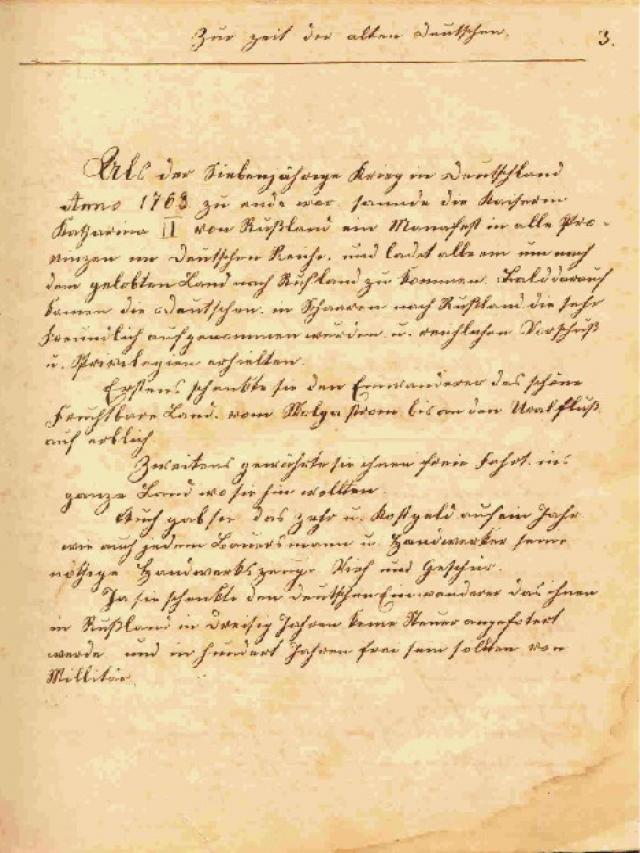 Zur zeit der alten Deutschen. 3.
Als der Siebenjährige Krieg in Deutschland
Anno 1763 zu ende war. sannde die Kaiserin
Katharina II von Rußland ein Manafest in alle Pro-
vinzen im Deutschen Reiche, und ladet alle ein um nach
dem gelobten Land nach Rußland zu kommen. Bald darauf
kamen die Deutschen. in Schaaren nach Rußland, die sehr
freundlich aufgenommen wurden u. reichlichen Vorschuß
u. Privilegien erhielten.
Erstens schenkte sie den Einwanderer das schöne
Fruchtbare Land. vom Wolga strom bis an den Uralfluß
auf erblich
Zweitens gewährte sie ihnen freie Fahrt. ins
ganze Land wo sie hin wollten.
Auch gab sie das zehr u. Kostgeld auf ein Jahr
wie auch jedem Bauersmann u. Handwerker seine
nöthige Handwerkszeuge Vieh und Geschir.
Ja sie schenkte den Deutschen Einwanderer das ihnen
in Rußland in Dreisig Jahren keine Steuer angefotert
werde und in hundert Jahren frei sein sollten von
Millitär